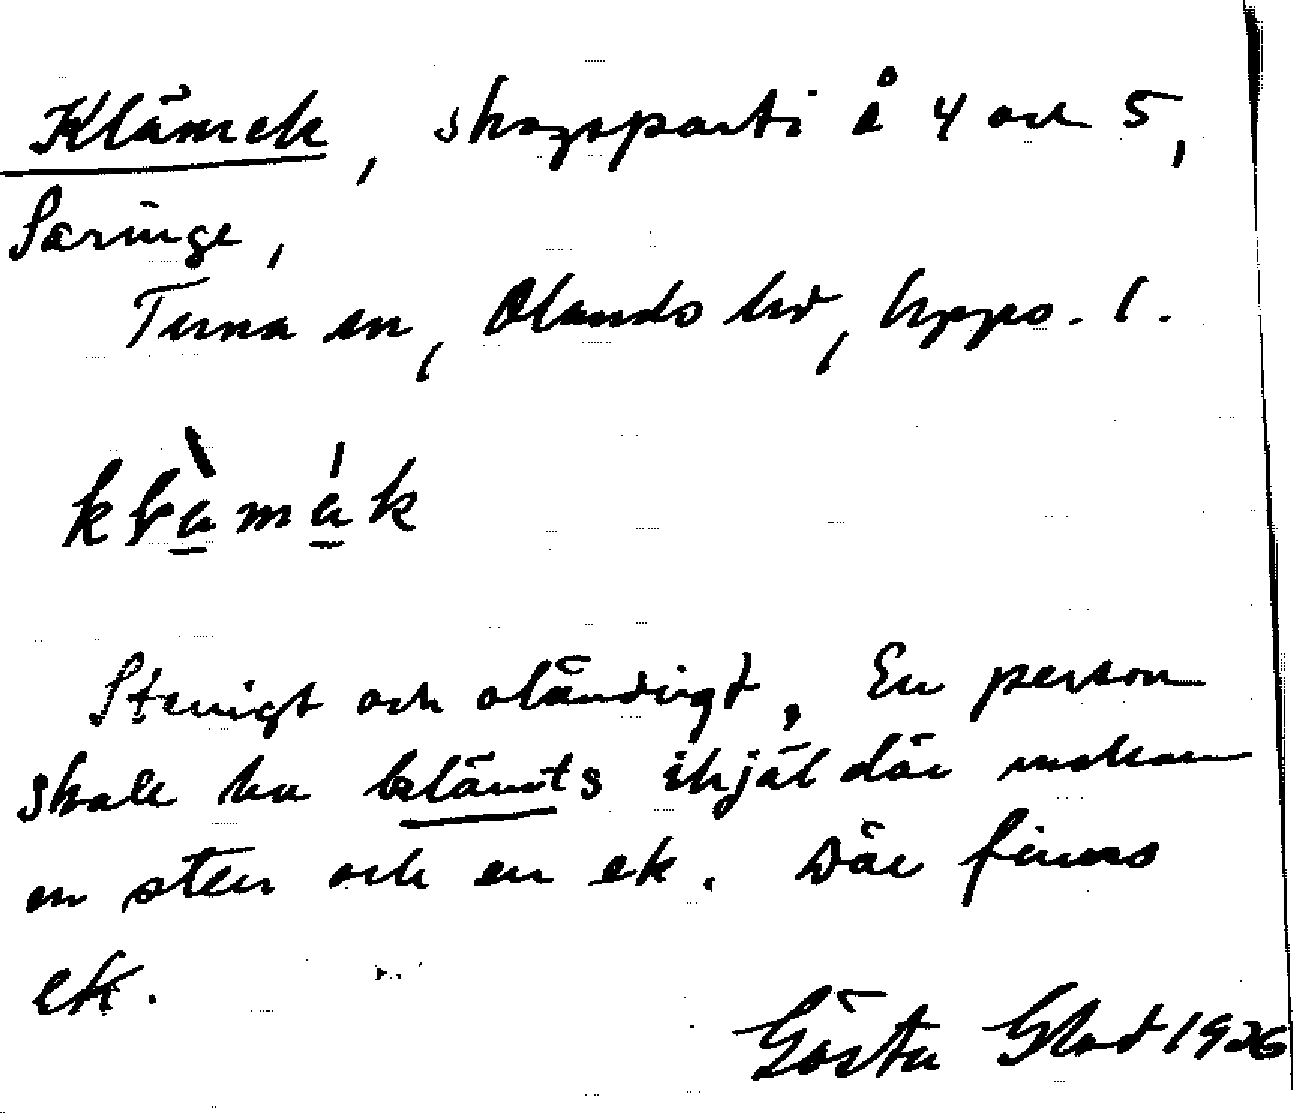 Klämek, skogsparti å 4 och 5,
Säringe,
Tuna sn, Olands hd, Upps. l.
klàmák
Stenigt och oländigt. En person
skall ha klämts ihjäl där mellan
en sten och en ek. Där finns
ek.
Gösta Blod 1926